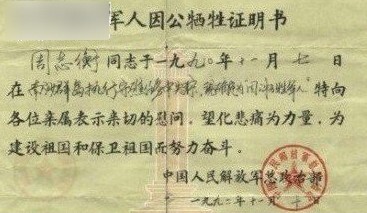 军人因公牺牲证明书
周志衡同志于一九九〇年十一月七日
在南沙群岛执行 特向
各位亲属表示亲切的慰问,望化悲痛为力量,为
建设祖国和保卫祖国而努力奋斗。
中国人民解放军 政治部
一九九 年十一月 日